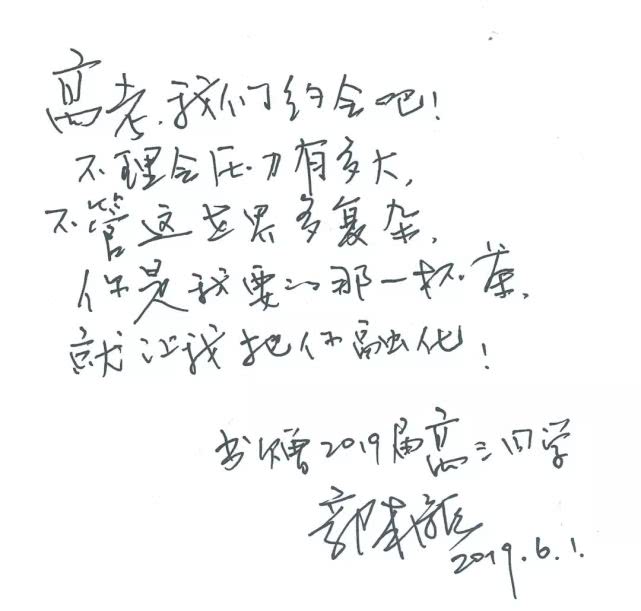 高考,我们约会吧!
不理会压力有多大,
不管这世界多复杂,
你是我要的那一杯茶,
就让我把你融化!
书赠2019届高三同学
2019.6.1.